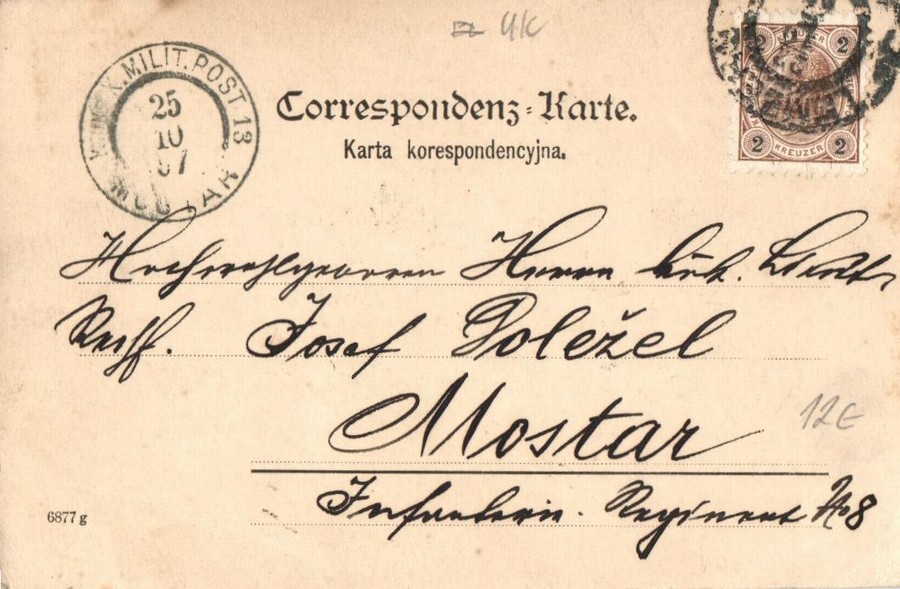 4K
K. UND K. MILIT. POST 13
25
10
97
MOSTAR
Correspondenz-Karte.
Karta korespondencyjna.
KREUZER
2 2
2 2
KREUZER
Hochwohlgeboren Herrn
Josef Doležel
Mostar
12E
Infanterie-Regiment No 8
6877 g